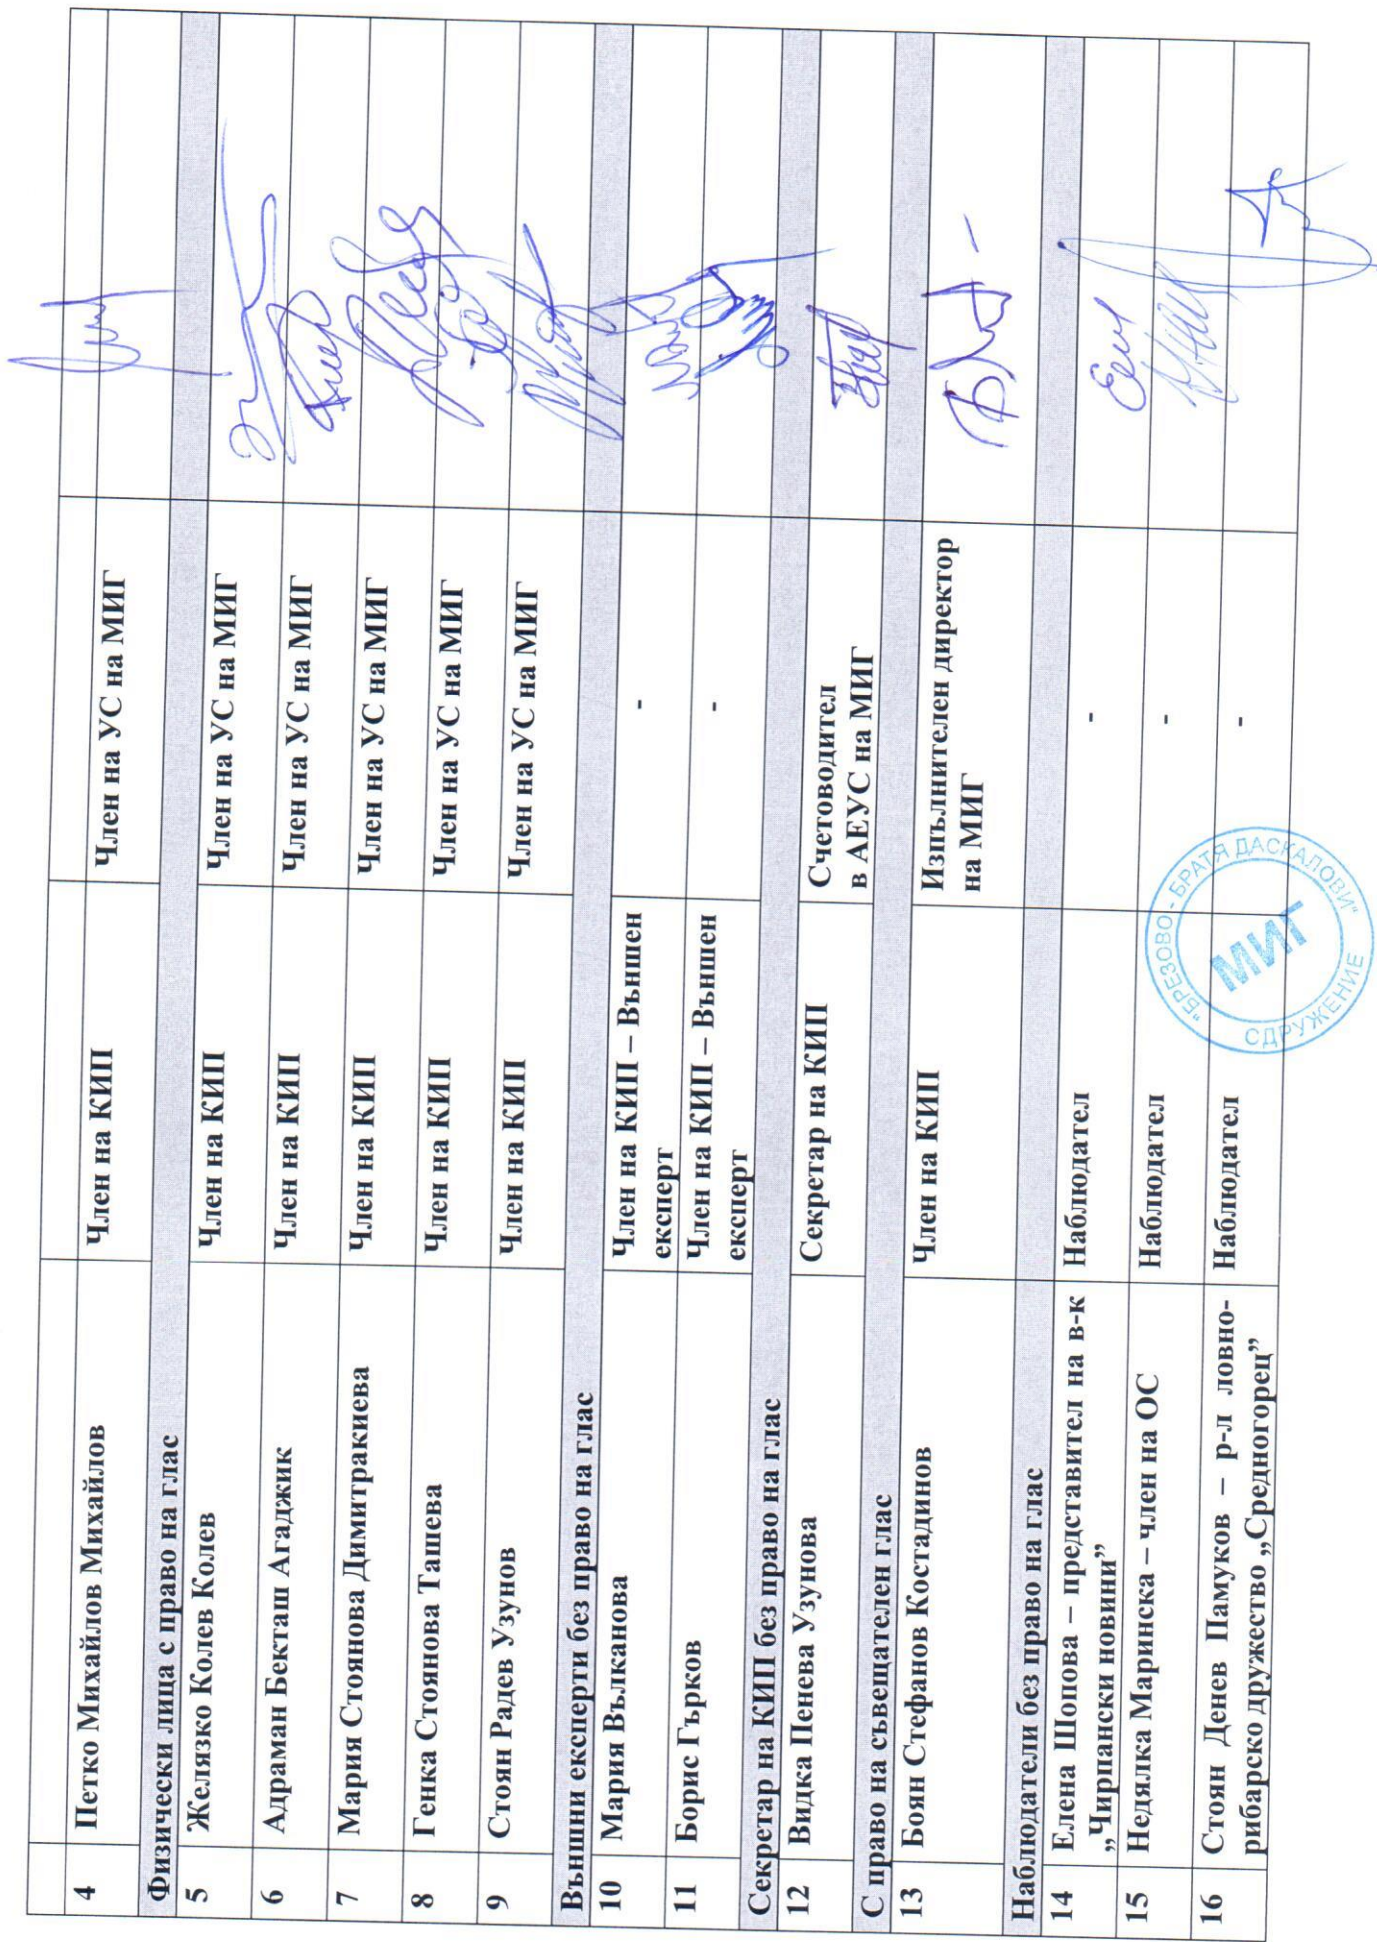 4 Петко Михайлов Михайлов Член на КИП Член на УС на МИГ
Физически лица с право на глас
5 Желязко Колев Колев Член на КИП Член на УС на МИГ
6 Адраман Бекташ Агаджик Член на КИП Член на УС на МИГ
7 Мария Стоянова Димитракиева Член на КИП Член на УС на МИГ
8 Генка Стоянова Ташева Член на КИП Член на УС на МИГ
9 Стоян Радев Узунов Член на КИП Член на УС на МИГ
Външни експерти без право на глас
10 Мария Вълканова Член на КИП – Външен -
експерт
11 Борис Гърков Член на КИП – Външен -
експерт
Секретар на КИП без право на глас
12 Видка Пенева Узунова Секретар на КИП Счетоводител
в АЕУС на МИГ
С право на съвещателен глас
13 Боян Стефанов Костадинов Член на КИП Изпълнителен директор
на МИГ
Наблюдатели без право на глас
14 Елена Шопова – представител на в-к Наблюдател -
„Чирпански новини”
15 Недялка Маринска – член на ОС Наблюдател -
16 Стоян Денев Памуков – р-л ловно- Наблюдател -
рибарско дружество „Средногорец”
"БРЕЗОВО - БРАТЯ ДАСКАЛОВИ"
МИГ
СДРУЖЕНИЕ